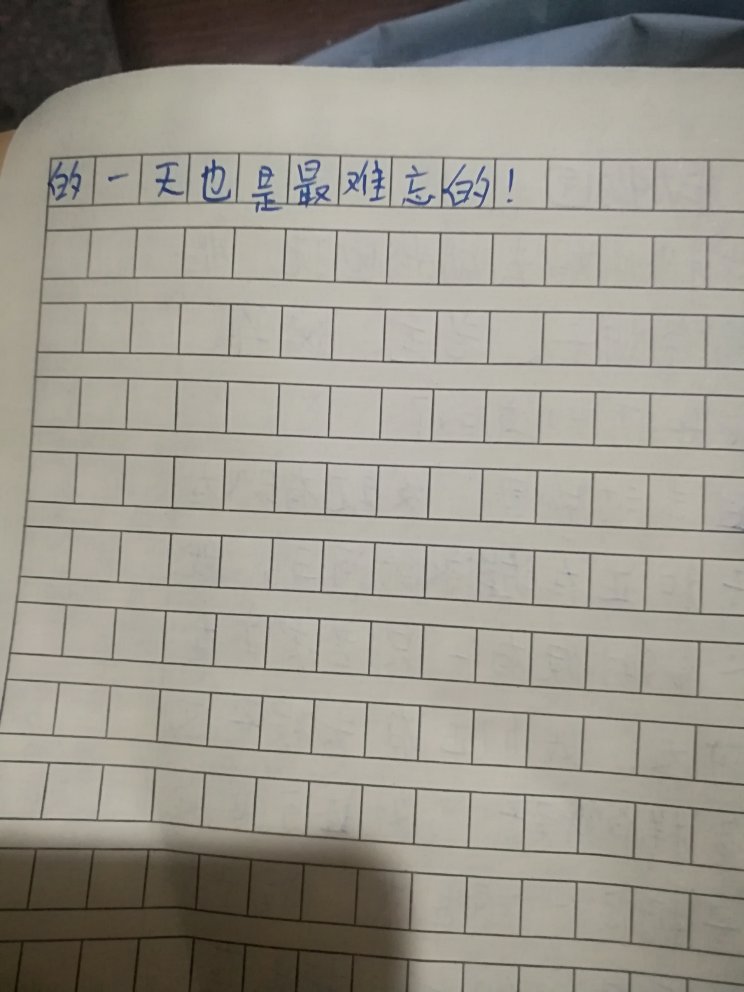 的一天也是最难忘的！